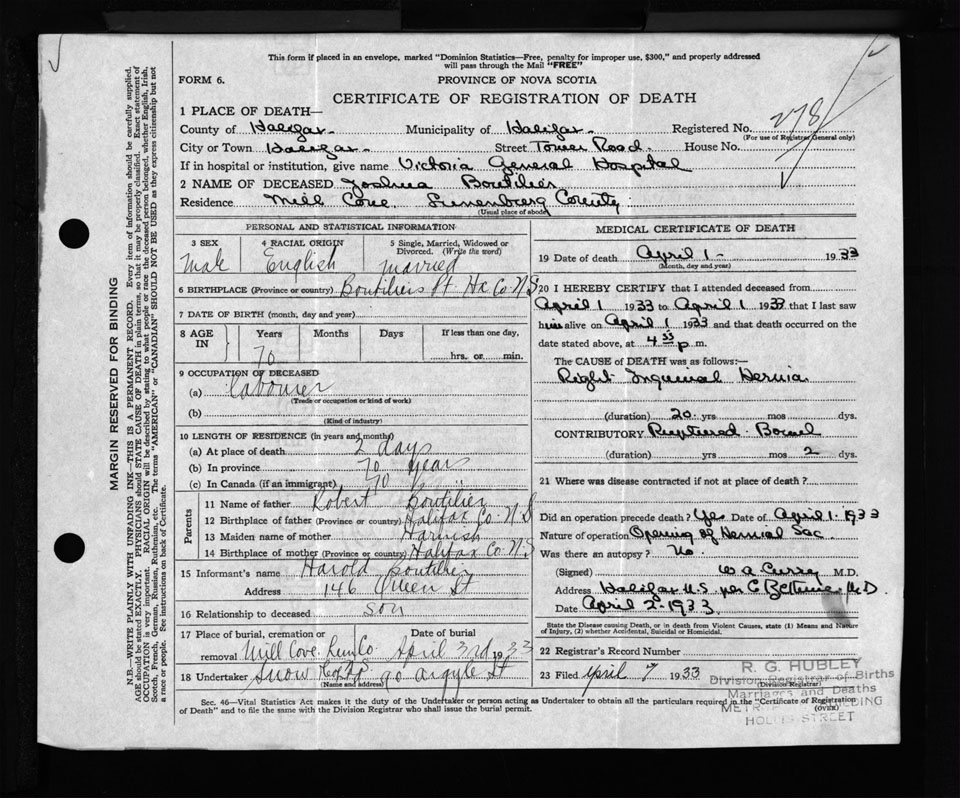 This form if placed in an envelope, marked "Dominion Statistics—Free, penalty for improper use, $300," and properly addressed
will pass through the Mail "FREE"
FORM 6.
PROVINCE OF NOVA SCOTIA
CERTIFICATE OF REGISTRATION OF DEATH
1 PLACE OF DEATH—
County of Halifax Municipality of Halifax Registered No. 278
(For use of Registrar General only)
City or Town Halifax Street Tower Road House No.
If in hospital or institution, give name Victoria General Hospital
2 NAME OF DECEASED Joshua Boutilier
Residence Mill Cove Lunenburg County
(Usual place of abode)
PERSONAL AND STATISTICAL INFORMATION
3 SEX 4 RACIAL ORIGIN 5 Single, Married, Widowed or Divorced. (Write the word)
Male English Married
6 BIRTHPLACE (Province or country) Boutiliers Pt Hx Co N S
7 DATE OF BIRTH (month, day and year)
8 AGE IN Years Months Days If less than one day.
70 hrs. or min.
9 OCCUPATION OF DECEASED
(a) labourer
(Trade or occupation or kind of work)
(b)
(Kind of industry)
10 LENGTH OF RESIDENCE (in years and months)
(a) At place of death 2 days
(b) In province 70 years
(c) In Canada (if an immigrant) 70 "
Parents
11 Name of father Robert Boutilier
12 Birthplace of father (Province or country) Halifax Co N S
13 Maiden name of mother Harnish
14 Birthplace of mother (Province or country) Halifax Co N S
15 Informant's name Harold Boutilier
Address 146 Queen St
16 Relationship to deceased son
17 Place of burial, cremation or removal Mill Cove. Lun Co. Date of burial April 3rd 1933
18 Undertaker Snow & Co Ltd 90 Argyle St
(Name and address)
MEDICAL CERTIFICATE OF DEATH
19 Date of death April 1 - 1933
(Month, day and year)
20 I HEREBY CERTIFY that I attended deceased from
April 1 1933 to April 1 1933 that I last saw
him alive on April 1 1933 and that death occurred on the
date stated above, at 4 55 p m.
The CAUSE of DEATH was as follows:—
Right Inguinal Hernia
(duration) 20 yrs mos dys.
CONTRIBUTORY Ruptured Bowel
(duration) yrs mos 2 dys.
21 Where was disease contracted if not at place of death?
Did an operation precede death? Yes Date of April 1. 1933
Nature of operation Opening of Hernial Sac
Was there an autopsy? No.
(Signed) W A Curry M.D.
Address Halifax N.S. per C M.D
Date April 2 - 1933.
State the Disease causing Death, or in death from Violent Causes, state (1) Means and Nature
of Injury, (2) whether Accidental, Suicidal or Homicidal.
22 Registrar's Record Number
23 Filed April 7 1933
(Division Registrar)
R. G. HUBLEY
Division Registrar of Births
Marriages and Deaths
BUILDING
HOLLIS STREET
Sec. 46—Vital Statistics Act makes it the duty of the Undertaker or person acting as Undertaker to obtain all the particulars required in the "Certificate of Registration
of Death" and to file the same with the Division Registrar who shall issue the burial permit. (OVER)
MARGIN RESERVED FOR BINDING
N.B. WRITE PLAINLY WITH UNFADING INK—THIS IS A PERMANENT RECORD. Every item of information should be carefully supplied.
AGE should be stated EXACTLY. PHYSICIANS should STATE CAUSE OF DEATH in plain terms, so that it may be properly classified. Exact statement of
OCCUPATION is very important. RACIAL ORIGIN will be described by stating to what people or race the deceased person belonged, whether English, Irish,
Scotch, French, German, Russian, Ruthenian, etc. The terms "AMERICAN" or "CANADIAN" SHOULD NOT BE USED as they express citizenship but not
a race or people. See instructions on back of Certificate.